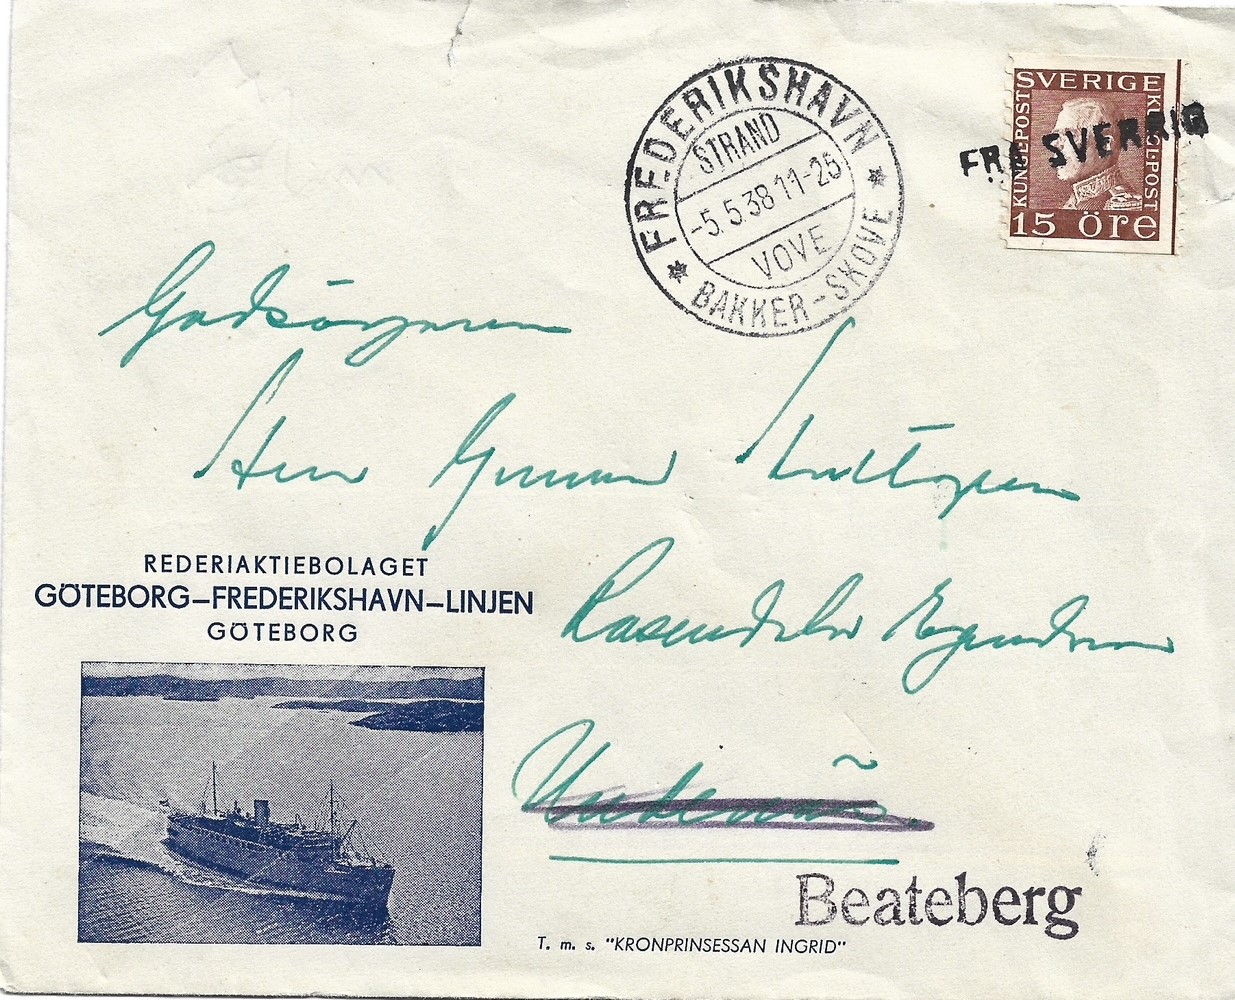 FREDERIKSHAVN
STRAND
-5.5.38 11-25
VOVE
BAKKER-SKOVE
SVERIGE
KUNGL·POST
KUNGL·POST
15 öre
FRA SVERRIG
Godsägaren
Herr Gunnar
Egendom
Undenäs.
REDERIAKTIEBOLAGET
GÖTEBORG–FREDERIKSHAVN–LINJEN
GÖTEBORG
Beateberg
T. m. s. "KRONPRINSESSAN INGRID"